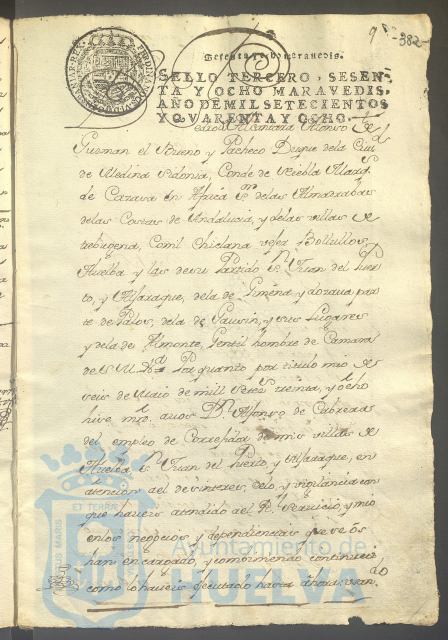 382
Sesenta y ocho maravedis.
SELLO TERCERO, SESEN-
TA Y OCHO MARAVEDIS,
AÑO DE MIL SETECIENTOS
Y QVARENTA Y OCHO.
Alcantara Alonso
Guzman el Bueno y Pacheco Duque dela Ciud
de Medina Sidonia, Conde de Niebla
de Cazaza en Africa Sr delas Almadrabas
delas Costas de Andalucia, y delas villas de
trebugena, Conil Chiclana vejer Bollullos,
Huelba y las de su Partido Sn Juan del Puer
to, y Alfaraque, dela de Ximena y dozava par
te de Palos, dela de Gausin, y sus Lugares
y dela de Almonte, Gentil hombre de Camara
de S. M. Por quanto por titulo mio de
seis de Maio de mill setezs treinta, y ocho
hice mrd. a vos Dn Alfonso de Cabrera
del empleo de Corregidor de mis villas de
Huelba Sn Juan del Puerto, y Alfaraque, en
atencion a el desinteres, zelo, y vigilancia con
que haveis atendido a el Rl servicio, y mio
en los negocios y dependencias que se os
han encargado, y combiniendo continueis
como lo haveis executado hasta ahora,
ET TERRE
Ayuntamiento de
HUELVA